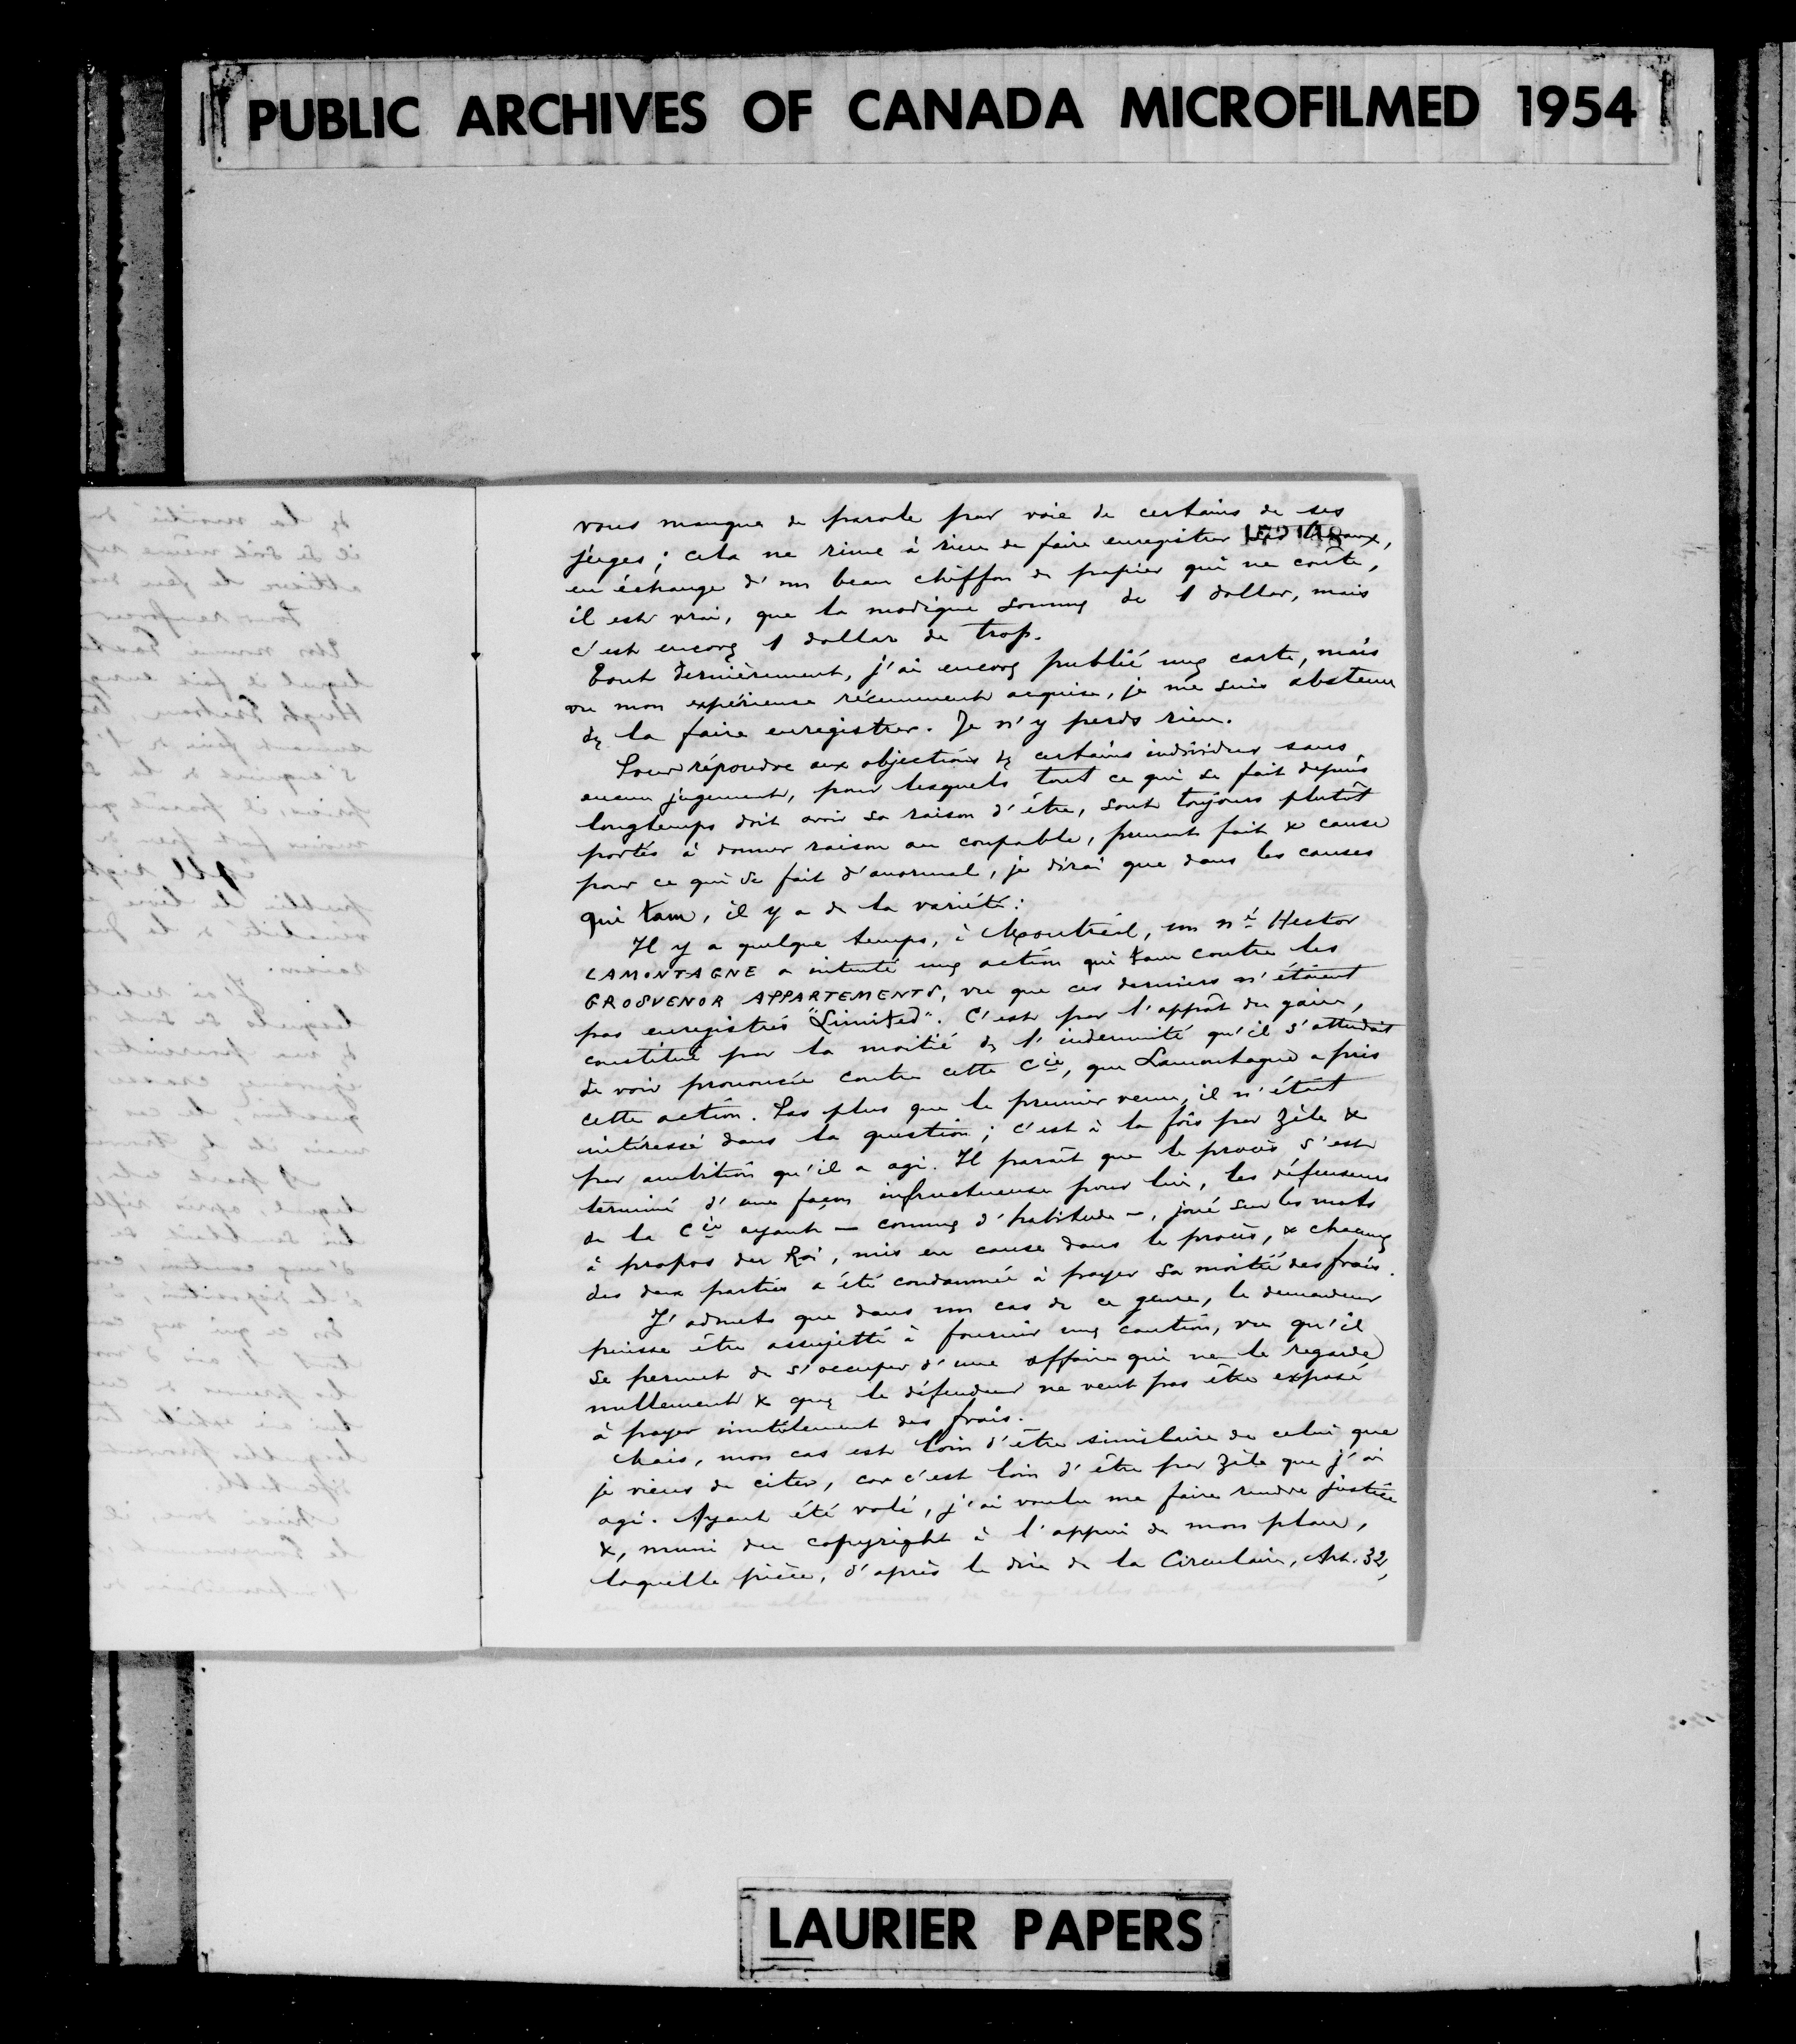 PUBLIC ARCHIVES OF CANADA MICROFILMED 1954
vous manque de parole par voie de certains de ses
juges; cela ne rime à rien de faire enregistrer ses travaux,
en échange d'un beau chiffon de papier qui ne coûte,
il est vrai, que la modique somme de 1 dollar, mais
c'est encore 1 dollar de trop.
Tout dernièrement, j'ai encore publié une carte, mais
vu mon expérience récemment acquise, je me suis abstenu
de la faire enregistrer. Je n'y perds rien.
Pour répondre aux objections de certains individus sans
aucun jugement, pour lesquels tout ce qui se fait depuis
longtemps doit avoir sa raison d'être, sont toujours plutôt
portés à donner raison au coupable, prenant fait & cause
pour ce qui se fait d'anormal, je dirai que dans les causes
qui tam, il y a de la variété:
Il y a quelque temps, à Montréal, un né Hector
LAMONTAGNE a intenté une action qui tam contre les
GROSVENOR APPARTEMENTS, vu que ces derniers n'étaient
pas enregistrés "Limited". C'est par l'appât du gain,
constitué par la moitié de l'indemnité qu'il s'attendait
de voir prononcée contre cette Cie, que Lamontagne a pris
cette action. Pas plus que le premier venu, il n'était
intéressé dans la question; c'est à la fois par zèle &
par ambition qu'il a agi. Il paraît que le procès s'est
terminé d'une façon infructueuse pour lui, les défenseurs
de la Cie ayant — comme d'habitude —, joué sur les mots
à propos du Roi, mis en cause dans le procès, & chacune
des deux parties a été condamnée à payer sa moitié des frais.
J'admets que dans un cas de ce genre, le demandeur
puisse être assujetti à fournir une caution, vu qu'il
se permet de s'occuper d'une affaire qui ne le regarde
nullement & que le défendeur ne veut pas être exposé
à payer inutilement des frais.
Mais, mon cas est loin d'être similaire de celui que
je viens de citer, car c'est loin d'être par zèle que j'ai
agi. Ayant été volé, j'ai voulu me faire rendre justice
&, muni du copyright à l'appui de mon plan,
laquelle pièce, d'après le dire de la Circulaire, Art. 32,
LAURIER PAPERS